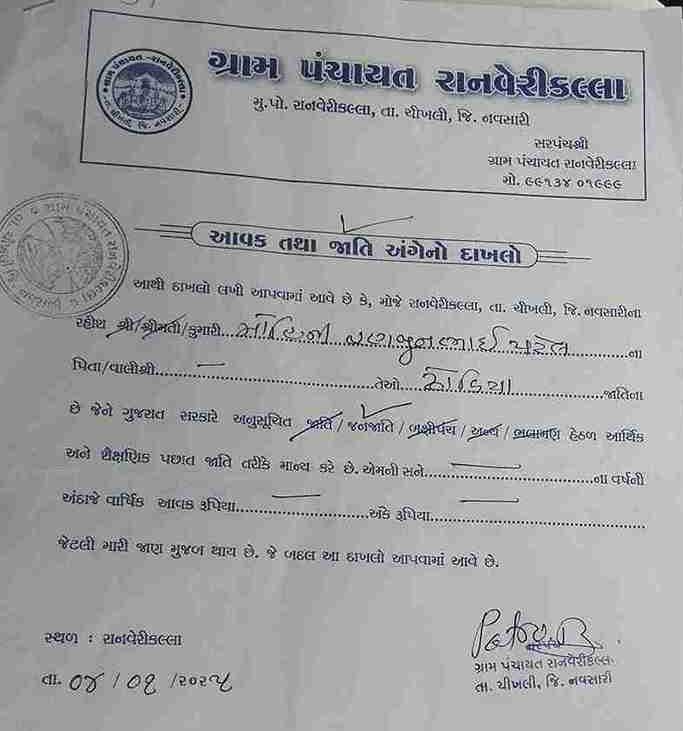 ગ્રામ પંચાયત રાનવેરીકલ્લા
મુ.પો. રાનવેરીકલ્લા, તા. ચીખલી, જિ. નવસારી
સરપંચશ્રી
ગ્રામ પંચાયત રાનવેરીકલ્લા
મો. ૯૯૧૩૪ ૦૧૯૯૯
આવક તથા જાતિ અંગેનો દાખલો
આથી દાખલો લખી આપવામાં આવે છે કે, મોજે રાનવેરીકલ્લા, તા. ચીખલી, જિ. નવસારીના
રહીશ શ્રી/શ્રીમતી/કુમારી... પટેલ ...ના
પિતા/વાલીશ્રી...તેઓ ધોડિયા ...જાતિના
છે જેને ગુજરાત સરકારે અનુસૂચિત જાતિ/જનજાતિ/બક્ષીપંચ/અન્ય/ભલામણ હેઠળ આર્થિક
અને શૈક્ષણિક પછાત જાતિ તરીકે માન્ય કરે છે. એમની સને...ના વર્ષની
અંદાજે વાર્ષિક આવક રૂપિયા...અંકે રૂપિયા...
જેટલી મારી જાણ મુજબ થાય છે. જે બદલ આ દાખલો આપવામાં આવે છે.
સ્થળ : રાનવેરીકલ્લા
તા. ૦૪/૦૧/૨૦૨૫
સરપંચ
ગ્રામ પંચાયત રાનવેરીકલ્લા
તા. ચીખલી, જિ. નવસારી